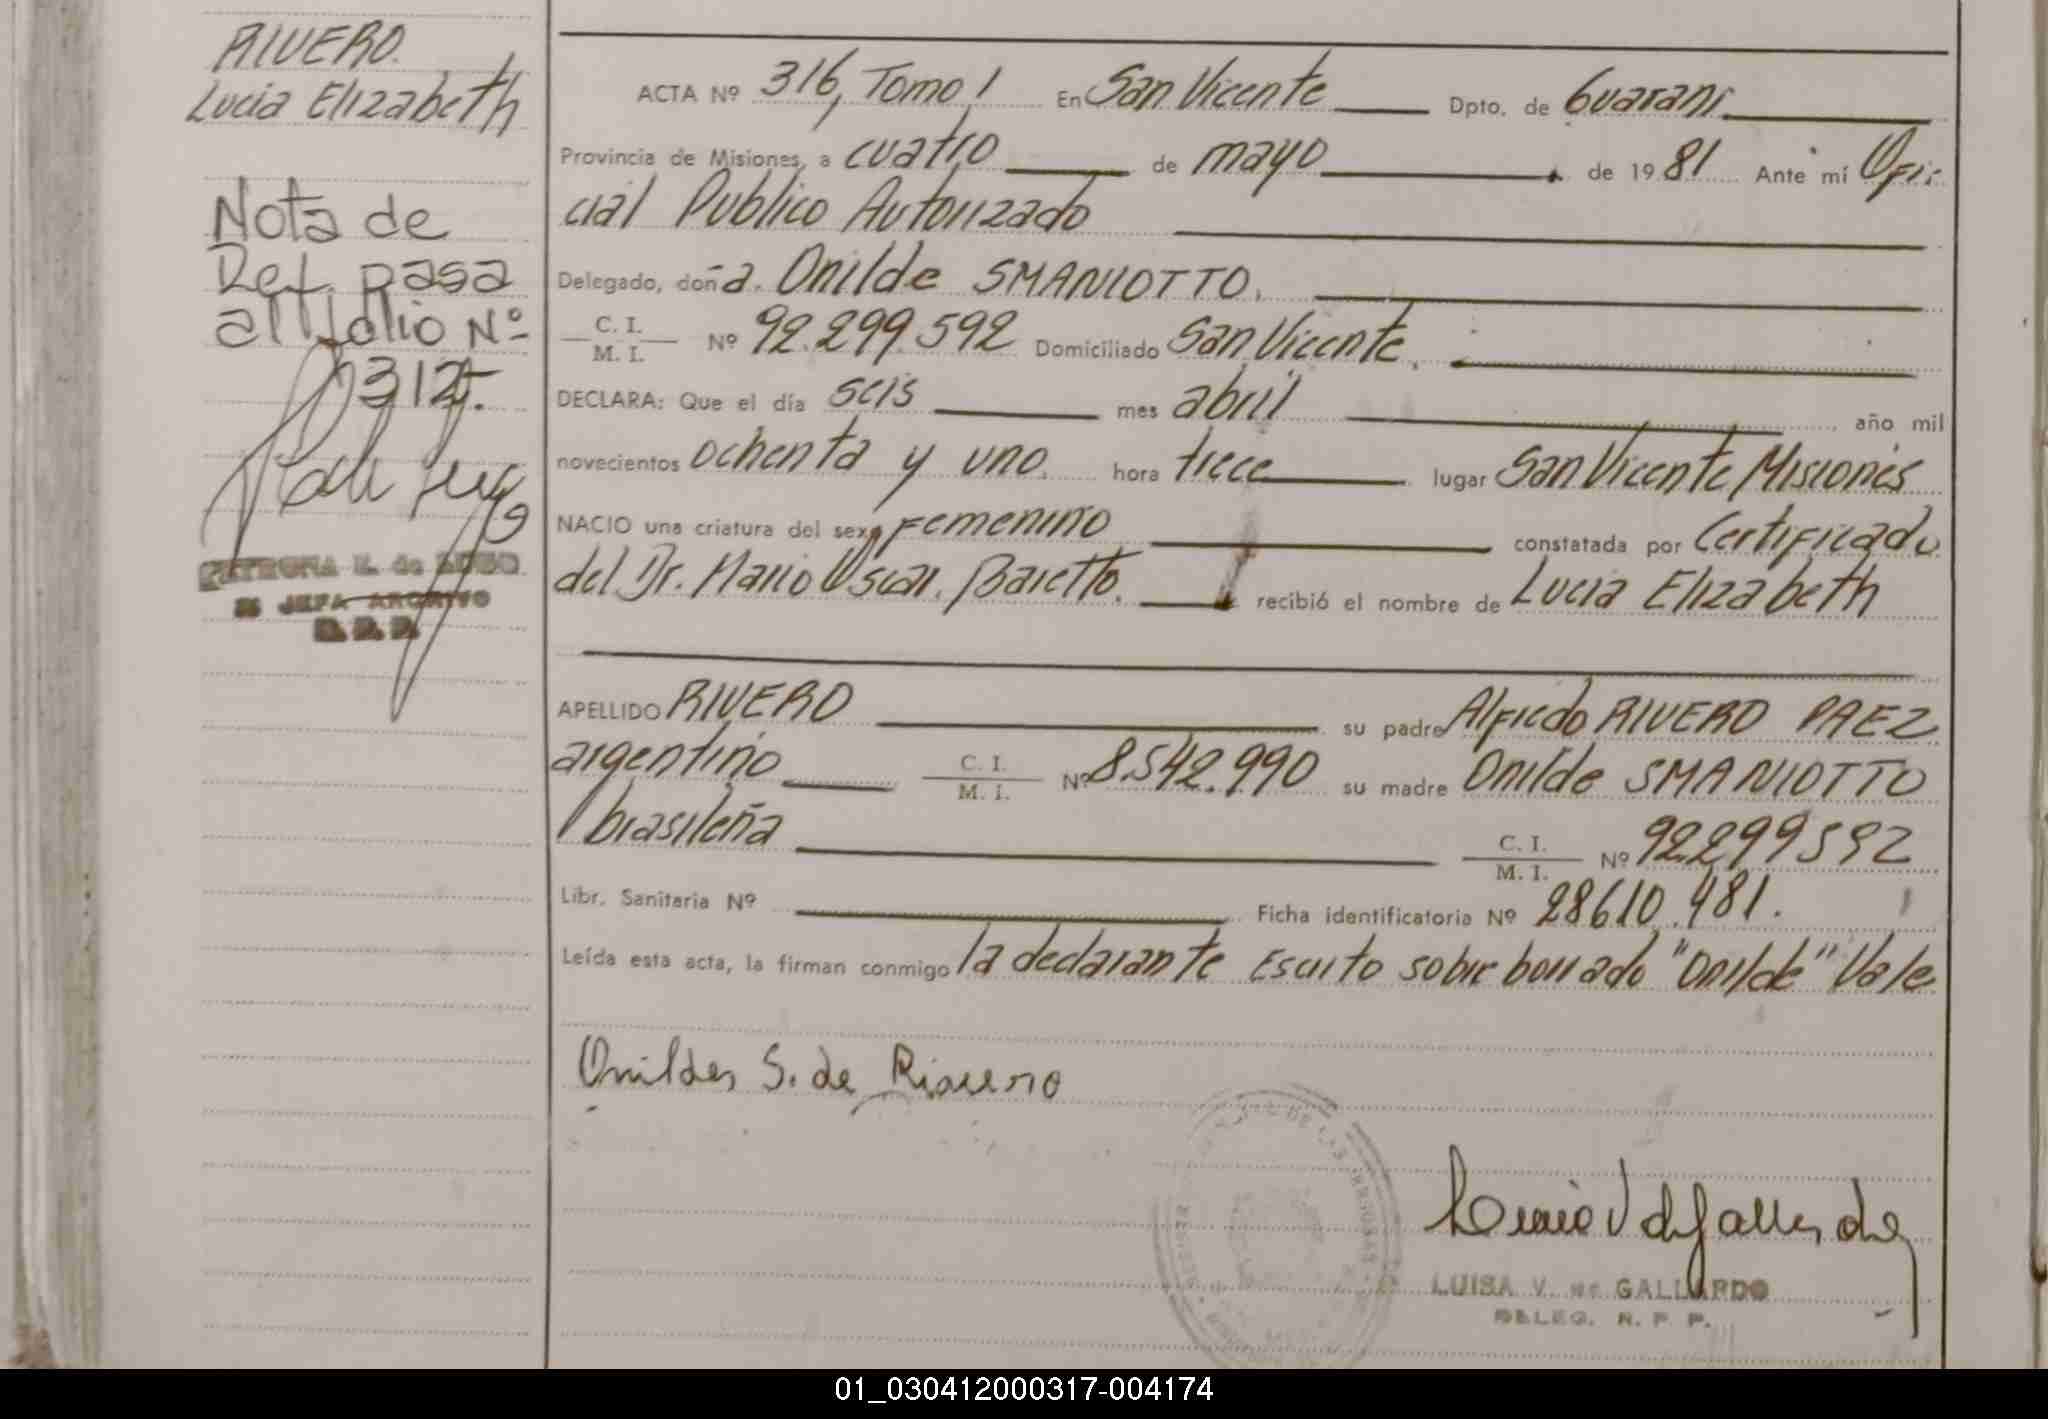 RIVERO.
Lucia Elizabeth
Nota de
Def. pasa
al folio Nº
312.
JEFA ARCHIVO
ACTA Nº 316, Tomo 1 En San Vicente Dpto. de Guarani
Provincia de Misiones, a cuatro de mayo de 1981 Ante mí Ofi-
cial Publico Autorizado
Delegado, doña. Onilde SMANIOTTO.
C. I.
M. I. Nº 92.299.592 Domiciliado San Vicente.
DECLARA: Que el día seis mes abril año mil
novecientos ochenta y uno. hora trece lugar San Vicente Misiones
NACIO una criatura del sexo Femenino constatada por Certificado
del Dr. Mario Oscar. Baretto. recibió el nombre de Lucia Elizabeth
APELLIDO RIVERO su padre Alfredo RIVERO PAEZ
argentino C. I.
M. I. Nº 8.542.990 su madre Onilde SMANIOTTO
brasileña C. I.
M. I. Nº 92.299592
Libr. Sanitaria Nº Ficha identificatoria Nº 28610.481.
Leída esta acta, la firman conmigo la declarante Escrito sobre borrado "Onilde" Vale
Onildes S. de Rivero
LUISA V. DE GALLARDO
DELEG. R. P. P.
01_030412000317-004174